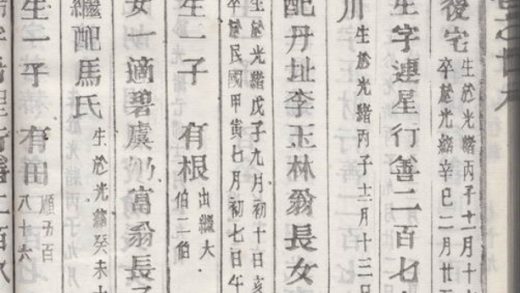 後宅
生於光緒丙子十一月十
卒於光緒辛巳二月廿
生字連星行善二百七
川
生於光緒丙子十二月十三日
配丹址李玉林翁長女
生於光緒戊子九月初十日亥
卒於民國甲寅七月初七日午
生二子 有根
出繼大
伯二伯
女一適碧虞礽富翁長子
繼配馬氏
生於光緒癸未十
生一子 有田
順五百
八十六